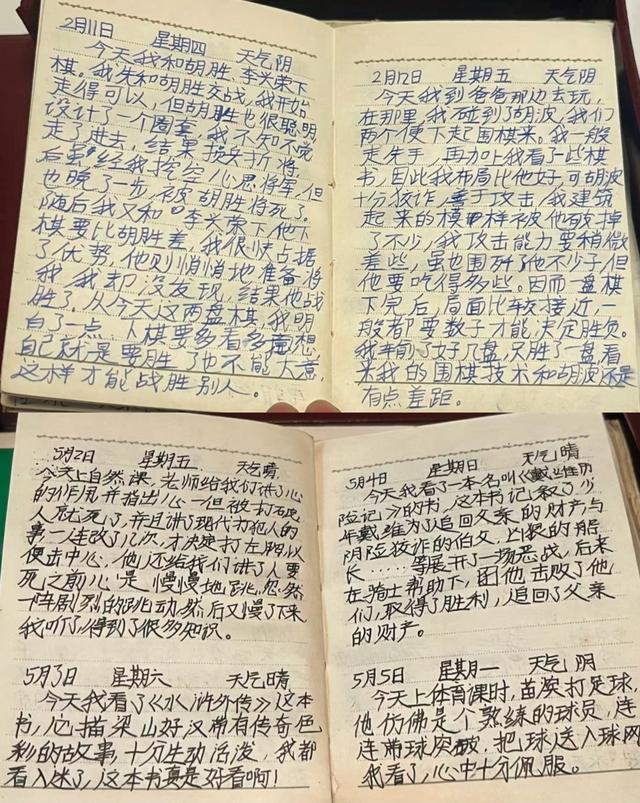 2月11日 星期四 天气阴
今天我和胡胜、李兴荣下
棋。我先和胡胜交战,我开始
走得可以,但胡胜也很聪明
设计了一个圈套,我不知不觉
走了进去,结果损兵折将
后虽经我挖空心思,将军,但
也晚了一步,被胡胜将死了。
随后我又和李兴荣下,他下
棋要比胡胜差,我很快占据
了优势,他则悄悄地准备将
我,我却没发现,结果他战
胜了。从今天这两盘棋,我明
白了一点,下棋要多看多想
自己就是要胜了也不能大意
这样才能战胜别人。
2月12日 星期五 天气阴
今天我到爸爸那边去玩,
在那里,我碰到了胡波,我们
两个便下起围棋来。我一般
走先手,再加上我看了些棋
书,因此我布局比他好,可胡波
十分狡诈,善于攻击,我建筑
起来的模样被他破掉
了不少,我攻击能力要稍微
差些,虽也围歼了他不少子,但
他要吃得多些。因而一盘棋
下完后,局面比较接近,一
般都要数子才能决定胜负。
我年前了好几盘,只胜了一盘看
来我的围棋技术和胡波还是
有点差距。
5月2日 星期五 天气晴
今天上自然课,老师给我们讲了心
的作用,并指出心一但被打破
人就死了,并且讲了现代打犯人的
事,一连改了几次,才决定打左胸以
便击中心,他还给我们讲了人要
死之前心是慢慢地跳,忽然
一阵剧烈的跳动,然后又慢了下来
我听了,得到了很多知识。
5月3日 星期六 天气晴
今天我看了《水浒外传》这本
书,它描梁山好汉带有传奇色
彩的故事,十分生动活泼,我都
看入迷了,这本书真是好看啊!
5月4日 星期日 天气晴
今天我看了一本名叫《戴维历
险记》的书,这本书记叙了少
年戴维为了追回父亲的财产与
阴险狡诈的伯父,凶狠的船
长……等展开了一场恶战,后来
在骑士帮助下,他击败了他
们,取得了胜利,追回了父亲
的财产。
5月5日 星期一 天气阴
今天上体育课时,首次打足球,
他仿佛是个熟练的球员,连
连带球突破,把球送入球网
我看了,心中十分佩服。